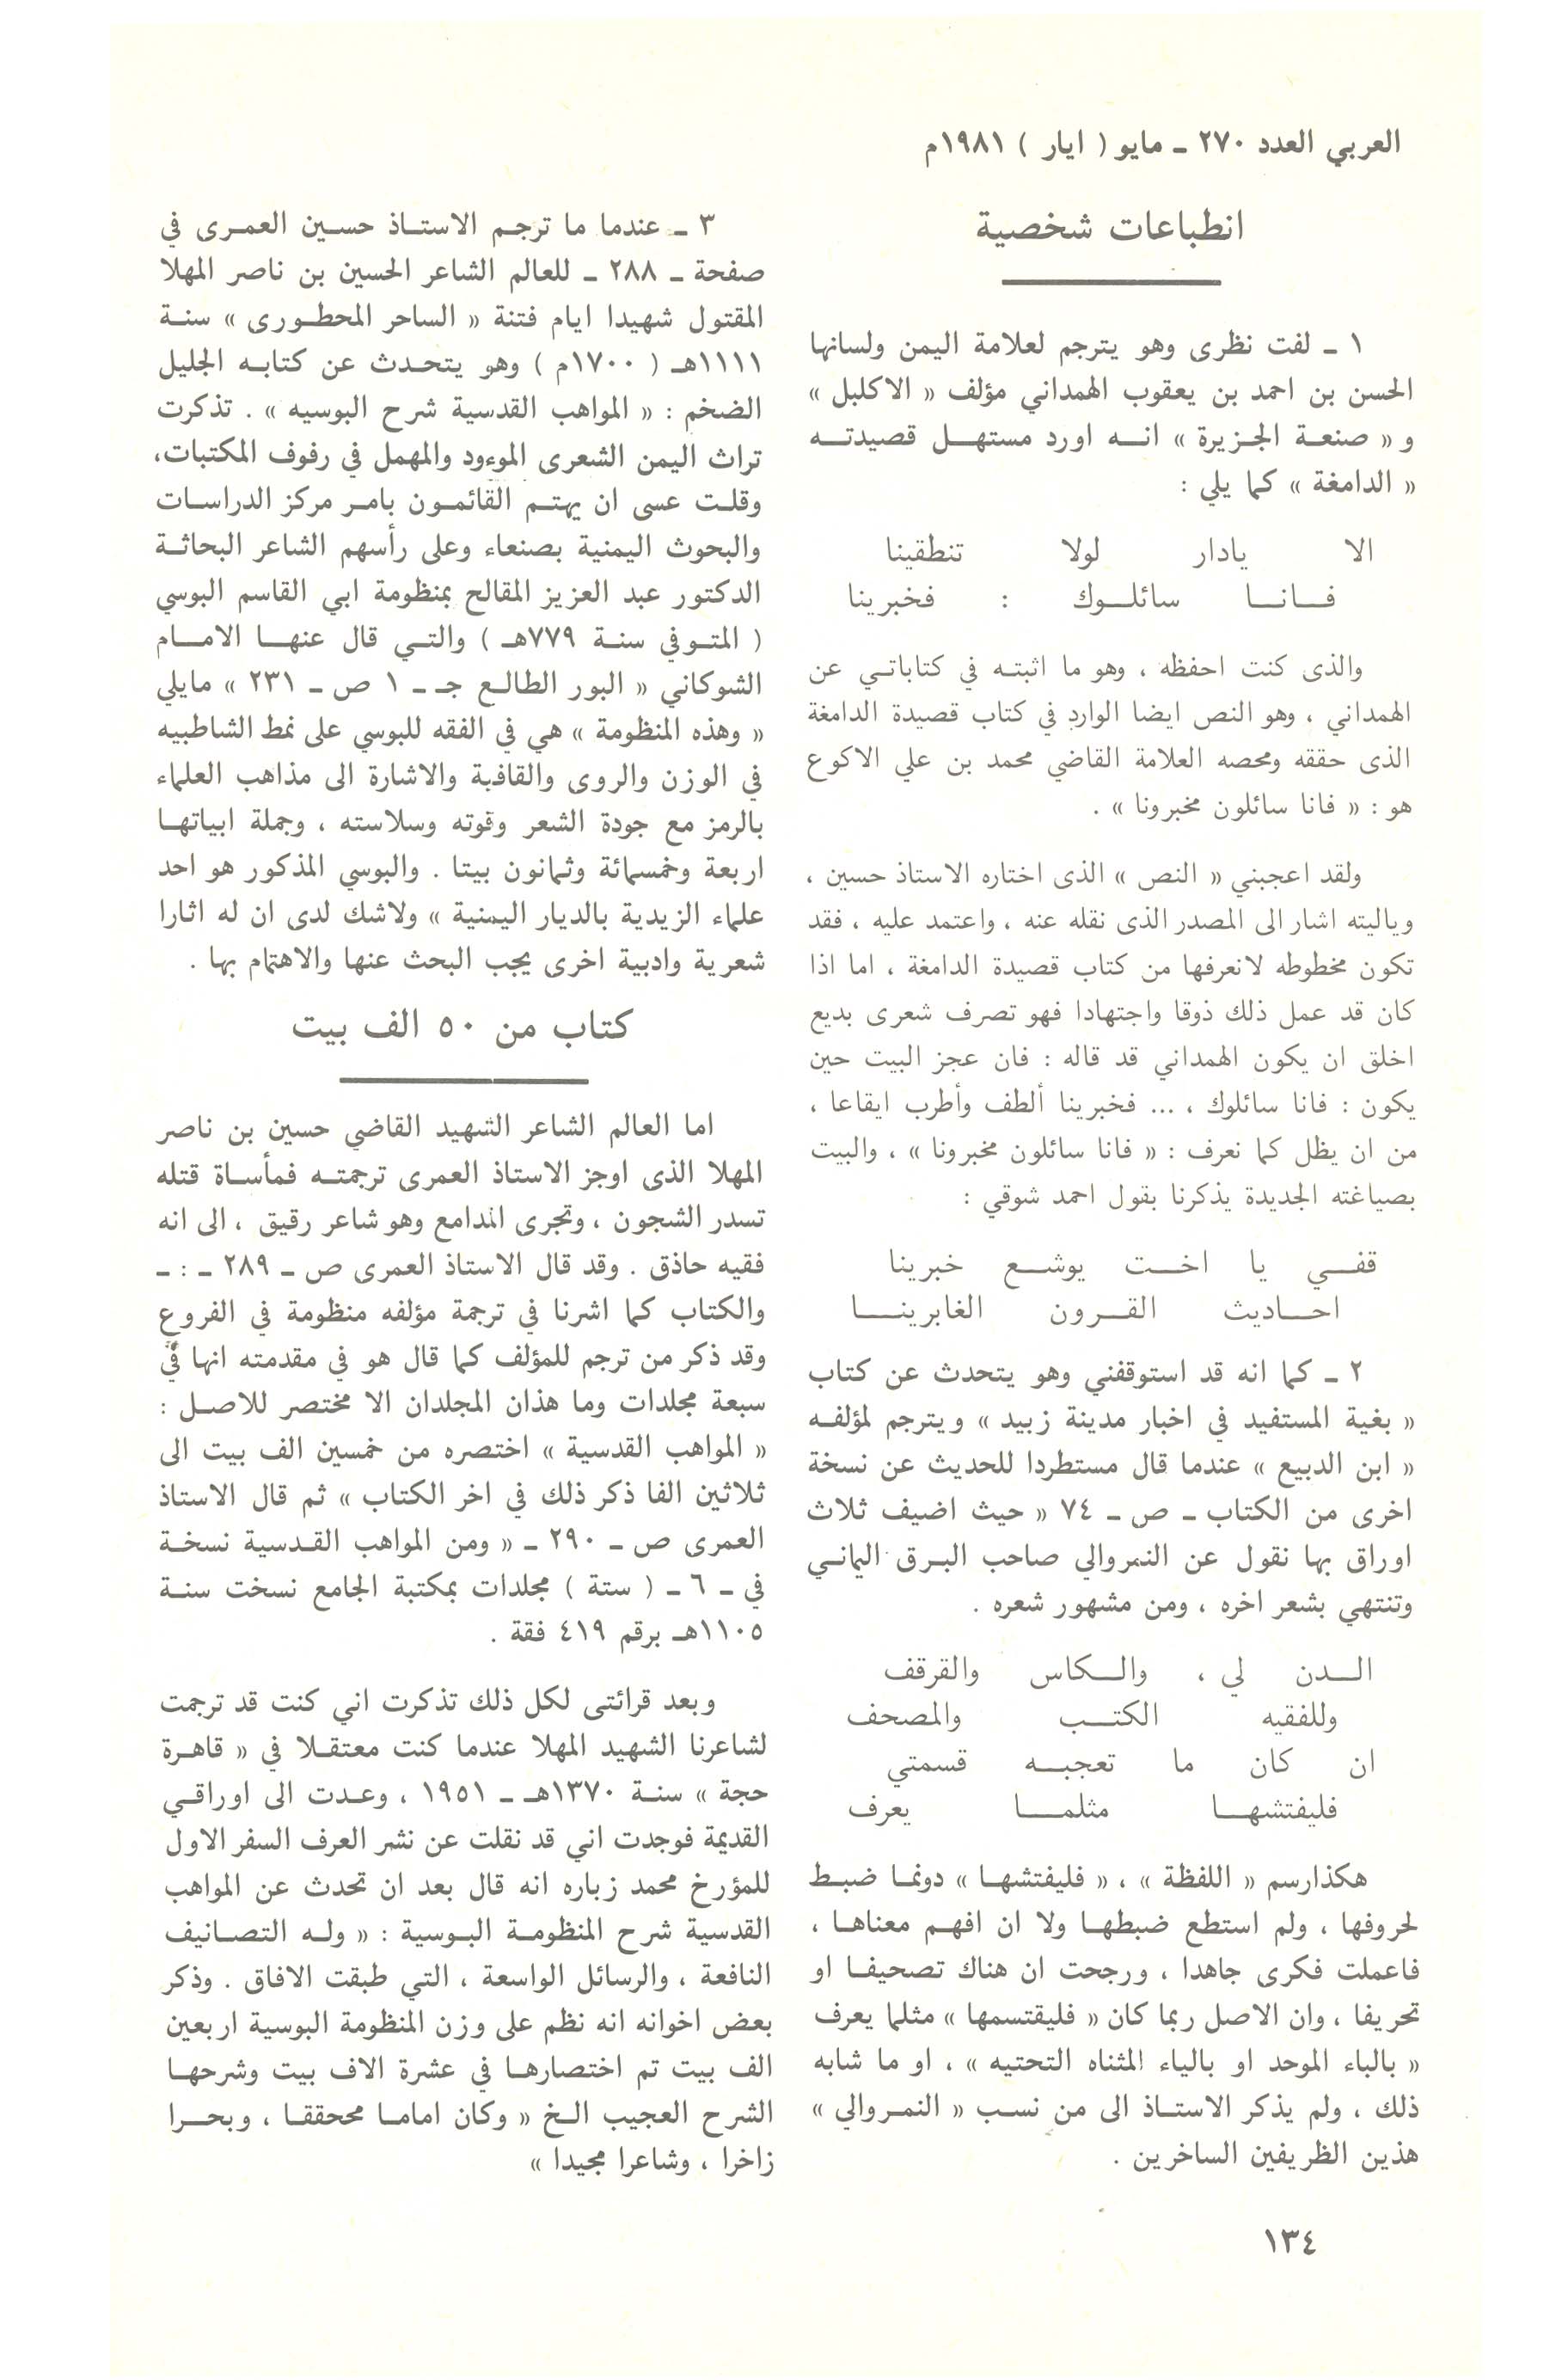 العربي العدد ٢٧٠ ـ مايو ( ايار ) ١٩٨١م
انطباعات شخصية
١ ـ لفت نظرى وهو يترجم لعلامة اليمن ولسانها
الحسن بن احمد بن يعقوب الهمداني مؤلف « الاكلبل »
و « صنعـة الجـزيرة » انـــه اورد مستهـــل قصيدتـــه
« الدامغة » كما يلي :
الا يادار لولا تنطقينا
فـــانـــا سائلـــوك : فخبرينا
والذى كنت احفظه ، وهو ما اثبتـه في كتاباتـي عن
الهمداني ، وهو النص ايضا الوارد في كتاب قصيدة الدامغة
الذى حققه ومحصه العلامة القاضي محمد بن علي الاكوع
هو : « فانا سائلون مخبرونا » .
ولقد اعجبني « النص » الذى اختاره الاستاذ حسين ،
وياليته اشار الى المصدر الذى نقله عنه ، واعتمد عليه ، فقد
تكون مخطوطه لانعرفها من كتاب قصيدة الدامغة ، اما اذا
كان قد عمل ذلك ذوقا واجتهادا فهو تصرف شعرى بديع
اخلق ان يكون الهمداني قد قاله : فان عجز البيت حين
يكون : فانا سائلوك ، ... فخبرينا ألطف وأطرب ايقاعا ،
من ان يظل كما نعرف : « فانا سائلون مخبرونا » ، والبيت
بصياغته الجديدة يذكرنا بقول احمد شوقي :
قفـــي يا اخـــت يوشـــع خبرينا
احـــاديث القـــرون الغابرينـــا
٢ ـ كما انه قد استوقفني وهو يتحدث عن كتاب
« بغية المستفيد في اخبار مدينة زبيد » ويترجم لمؤلفـه
« ابن الدبيع » عندما قال مستطردا للحديث عن نسخة
اخرى من الكتاب ـ ص ـ ٧٤ « حيث اضيف ثلاث
اوراق بها نقول عن النمروالي صاحب البـرق اليمانـي
وتنتهي بشعر اخره ، ومن مشهور شعره .
الـــدن لي ، والـــكاس والقرقف
وللفقيه الكتـــب والمصحف
ان كان ما تعجبـــه قسمتي
فليفتشهـــا مثلمـــا يعرف
هكذارسم « اللفظة » ، « فليفتشهـا » دونمـا ضبـط
لحروفها ، ولم استطع ضبطهـا ولا ان افهـم معناهـا ،
فاعملت فكرى جاهدا ، ورجحت ان هناك تصحيفـا او
تحريفا ، وان الاصل ربما كان « فليقتسمها » مثلما يعرف
« بالباء الموحد او بالياء المثناه التحتيه » ، او ما شابه
ذلك ، ولم يذكر الاستـاذ الى من نسـب « النمـروالي »
هذين الظريفين الساخرين .
٣ ـ عندما ما ترجـم الاستـاذ حسـين العمـرى في
صفحة ـ ٢٨٨ ـ للعالم الشاعر الحسين بن ناصر المهلا
المقتول شهيدا ايام فتنة « الساحر المحطـورى » سنـة
١١١١هـ ( ١٧٠٠م ) وهو يتحـدث عن كتابـه الجليل
الضخم : « المواهب القدسية شرح البوسيه » . تذكرت
تراث اليمن الشعرى الموءود والمهمل في رفوف المكتبات،
وقلـت عسى ان يهتـم القائمـون بامـر مركز الدراسـات
والبحوث اليمنية بصنعاء وعلى رأسهم الشاعر البحاثـة
الدكتور عبد العزيز المقالح بمنظومة ابي القاسم البوسي
( المتـوفي سنـة ٧٧٩هـ ) والتـي قال عنهـا الامـام
الشوكاني « البور الطالـع جـ ـ ١ ص ـ ٢٣١ » مايلي
« وهذه المنظومة » هي في الفقه للبوسي على نمط الشاطبيه
في الوزن والروى والقافية والاشارة الى مذاهب العلماء
بالرمز مع جودة الشعر وقوته وسلاسته ، وجملة ابياتهـا
اربعة وخمسمائة وثمانون بيتا . والبوسي المذكور هو احد
علماء الزيدية بالديار اليمنية » ولاشك لدى ان له اثارا
شعرية وادبية اخرى يجب البحث عنها والاهتمام بها .
كتاب من ٥٠ الف بيت
اما العالم الشاعر الشهيد القاضي حسين بن ناصر
المهلا الذى اوجز الاستاذ العمرى ترجمتـه فمأسـاة قتله
تسدر الشجون ، وتجرى المدامع وهو شاعر رقيق ، الى انه
فقيه حاذق . وقد قال الاستاذ العمرى ص ـ ٢٨٩ ـ : ـ
والكتاب كما اشرنا في ترجمة مؤلفه منظومة في الفروع
وقد ذكر من ترجم للمؤلف كما قال هو في مقدمته انها في
سبعة مجلدات وما هذان المجلدان الا مختصر للاصـل :
« المواهب القدسية » اختصره من خمسين الف بيت الى
ثلاثين الفا ذكر ذلك في اخر الكتاب » ثم قال الاستاذ
العمرى ص ـ ٢٩٠ ـ « ومن المواهب القـدسية نسخـة
في ـ ٦ ـ ( ستة ) مجلدات بمكتبة الجامع نسخت سنـة
١١٠٥هـ برقم ٤١٩ فقة .
وبعد قرائتى لكل ذلك تذكرت اني كنت قد ترجمت
لشاعرنا الشهيد المهلا عندما كنت معتقـلا في « قاهـرة
حجة » سنـة ١٣٧٠هـ ـ ١٩٥١ ، وعـدت الى اوراقـي
القديمة فوجدت اني قد نقلت عن نشر العرف السفر الاول
للمؤرخ محمد زباره انه قال بعد ان تحدث عن المواهب
القدسية شرح المنظومـة البـوسية : « ولـه التصـانيف
النافعة ، والرسائل الواسعة ، التي طبقت الافاق . وذكر
بعض اخوانه انه نظم على وزن المنظومة البوسية اربعين
الف بيت تم اختصارهـا في عشرة الاف بيت وشرحهـا
الشرح العجيب الـخ « وكان امامـا محققـا ، وبحـــرا
زاخرا ، وشاعرا مجيدا »
١٣٤